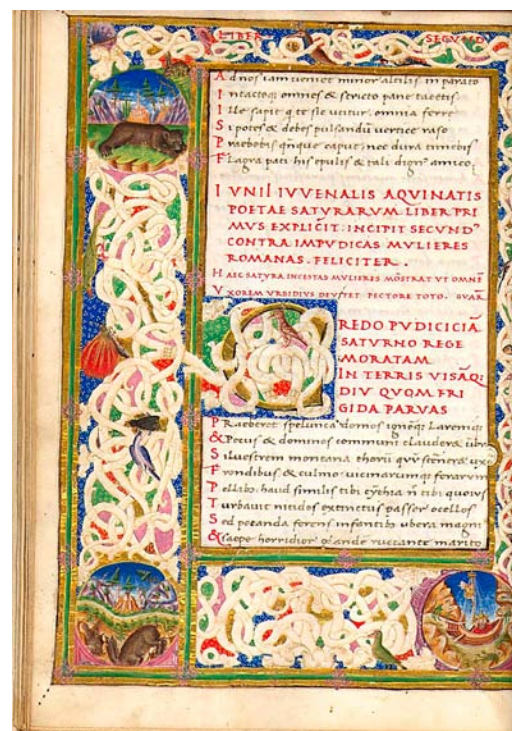 LIBER SEGVND
Ad nos iam veniet minor altilis in parato
Intactoq; omnes & stricto pane tacetis
Ille sapit q te sic utitur. omnia ferre
Si potes & debes pulsandū vertice raso
Praebebis qnque caput. nec dura timebis
Flagra pati. his epulis & tali dign' amico.
IVNII IVVENALIS AQVINATIS
POETAE SATVRARVM LIBER PRI
MVS EXPLICIT. INCIPIT SECVND'
CONTRA IMPVDICAS MVLIERES
ROMANAS. FELICITER.
HAEC SATVRA INCESTAS MVLIERES MŌSTRAT VT OMNĒ
VXOREM VRSIDIVS PECTORE TOTO.
CREDO PVDICICIĀ
SATVRNO REGE
MORATAM
IN TERRIS VISĀQ;
DIV QVOM FRI
GIDA PARVAS
Praeberet spelunca domos ignēq; Laremq;
& Pecus & dominos communi clauderet
Siluestrem montana thorū
Frondibus & culmo vicinarumque ferarum
Pellibo. haud similis tibi cythia n tibi quoius
Turbauit nitidos extinctus passer ocellos
Sed potanda ferens infantibo ubera magni
& saepe horridior glande ructante marito